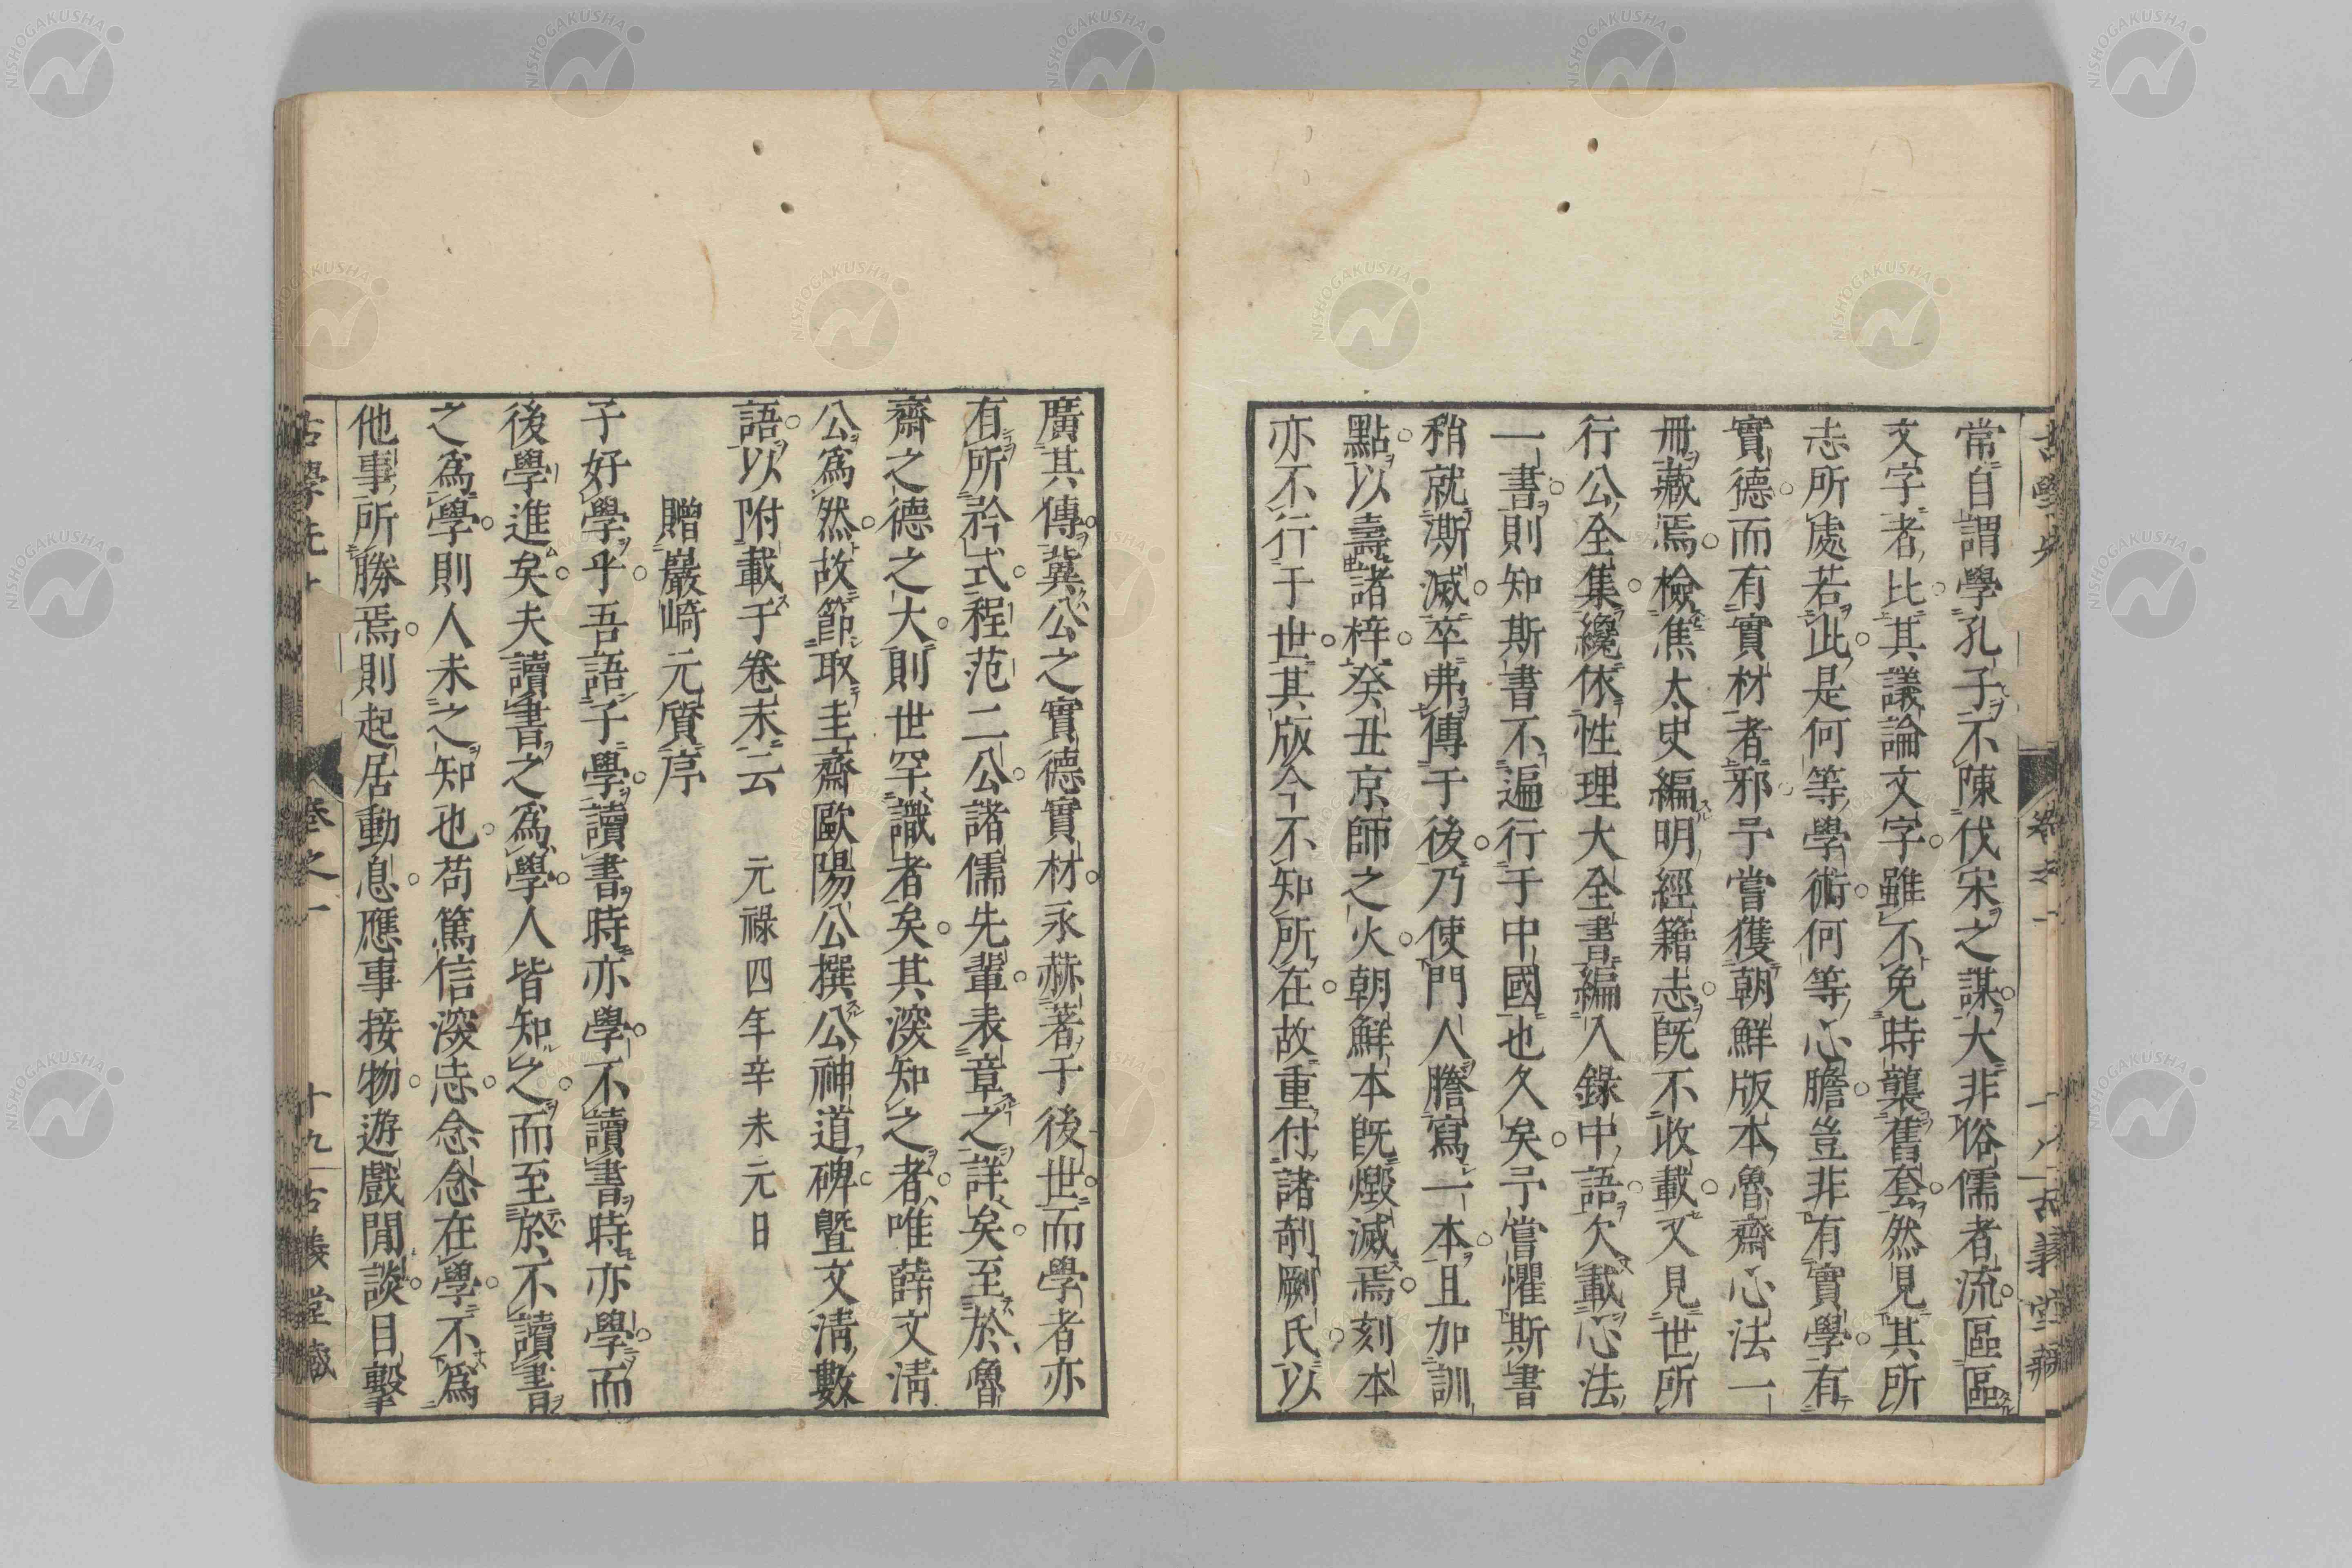 常自謂學孔子不陳伐宋之謀大非俗儒者流區區
文字者比其議論文字雖不免時襲舊套然見其所
志所處若此是何等學術何等心膽豈非有實學有
實德而有實材者邪予嘗獲朝鮮版本魯齋心法一
冊藏焉檢焦太史編明經籍志既不收載又見世所
行公全集纔依性理大全書編入錄中語欠載心法
一書則知斯書不遍行于中國也久矣予嘗懼斯書
稍就澌滅卒弗傳于後乃使門人謄寫一本且加訓
點以壽諸梓癸丑京師之火朝鮮本既燬滅焉刻本
亦不行于世其版今不知所在故重付諸剞劂氏以
廣其傳冀公之實德實材永赫著于後世而學者亦
有所矜式程范二公諸儒先輩表章之詳矣至於魯
齋之德之大則世罕識者矣其深知之者唯薛文淸
公爲然故節取圭齋歐陽公撰公神道碑曁文淸數
語以附載于卷末云 元祿四年辛未元日
贈巖崎元質序
子好學乎吾語子學讀書時亦學不讀書時亦學而
後學進矣夫讀書之爲學人皆知之而至於不讀書
之爲學則人未之知也苟篤信深志念念在學不爲
他事所勝焉則起居動息應事接物遊戲閒談目擊
卷之一
十九 古義堂藏